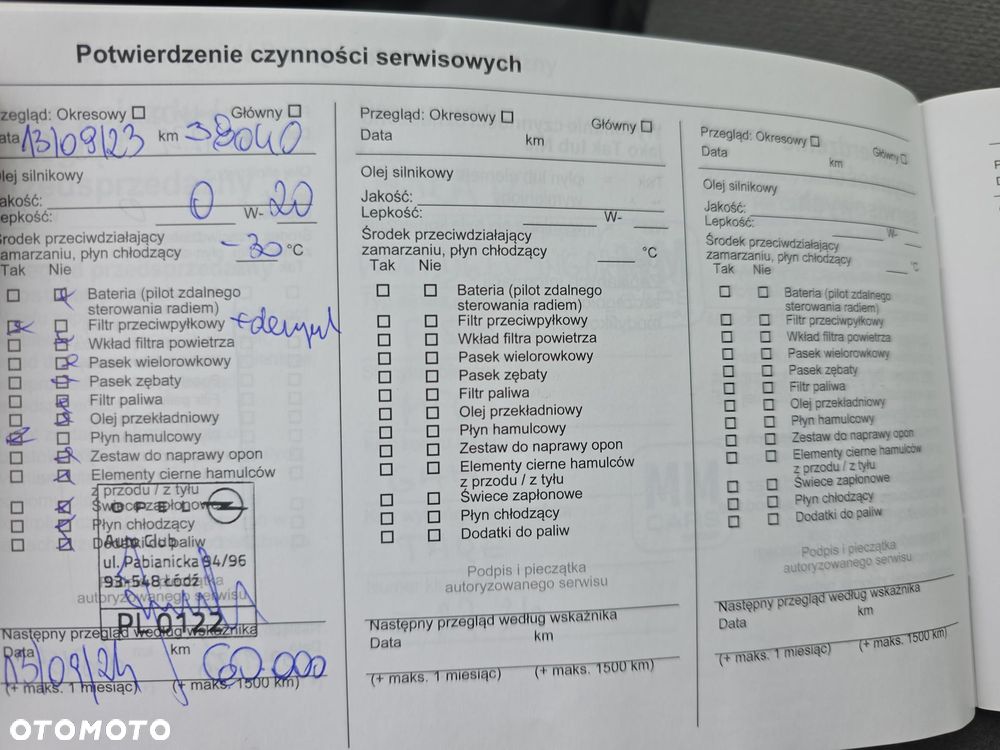 Potwierdzenie czynności serwisowych
rzegląd: Okresowy Główny
ata 13/09/23 km 38040
Olej silnikowy
Jakość:
epkość: 0 W- 20
Środek przeciwdziałający
zamarzaniu, płyn chłodzący -30 °C
Tak Nie
Bateria (pilot zdalnego
sterowania radiem)
Filtr przeciwpyłkowy
Wkład filtra powietrza
Pasek wielorowkowy
Pasek zębaty
Filtr paliwa
Olej przekładniowy
Płyn hamulcowy
Zestaw do naprawy opon
Elementy cierne hamulców
z przodu / z tyłu
Świece zapłonowe
Płyn chłodzący
Dodatki do paliw
OPEL
Auto Club
ul. Pabianicka 94/96
93-548 Łódź
autoryzowanego serwisu
PL 0122
Następny przegląd według wskaźnika
Data km
13/09/24 60.000
(+ maks. 1 miesiąc) (+ maks. 1500 km)
Przegląd: Okresowy Główny
Data km
Olej silnikowy
Jakość:
Lepkość: W-
Środek przeciwdziałający
zamarzaniu, płyn chłodzący °C
Tak Nie
Bateria (pilot zdalnego
sterowania radiem)
Filtr przeciwpyłkowy
Wkład filtra powietrza
Pasek wielorowkowy
Pasek zębaty
Filtr paliwa
Olej przekładniowy
Płyn hamulcowy
Zestaw do naprawy opon
Elementy cierne hamulców
z przodu / z tyłu
Świece zapłonowe
Płyn chłodzący
Dodatki do paliw
Podpis i pieczątka
autoryzowanego serwisu
Następny przegląd według wskaźnika
Data km
(+ maks. 1 miesiąc) (+ maks. 1500 km)
Przegląd: Okresowy Główny
Data km
Olej silnikowy
Jakość:
Lepkość: W-
Środek przeciwdziałający
zamarzaniu, płyn chłodzący °C
Tak Nie
Bateria (pilot zdalnego
sterowania radiem)
Filtr przeciwpyłkowy
Wkład filtra powietrza
Pasek wielorowkowy
Pasek zębaty
Filtr paliwa
Olej przekładniowy
Płyn hamulcowy
Zestaw do naprawy opon
Elementy cierne hamulców
z przodu / z tyłu
Świece zapłonowe
Płyn chłodzący
Dodatki do paliw
Podpis i pieczątka
autoryzowanego serwisu
Następny przegląd według wskaźnika
Data km
(+ maks. 1 miesiąc) (+ maks. 1500 km)
OTOMOTO